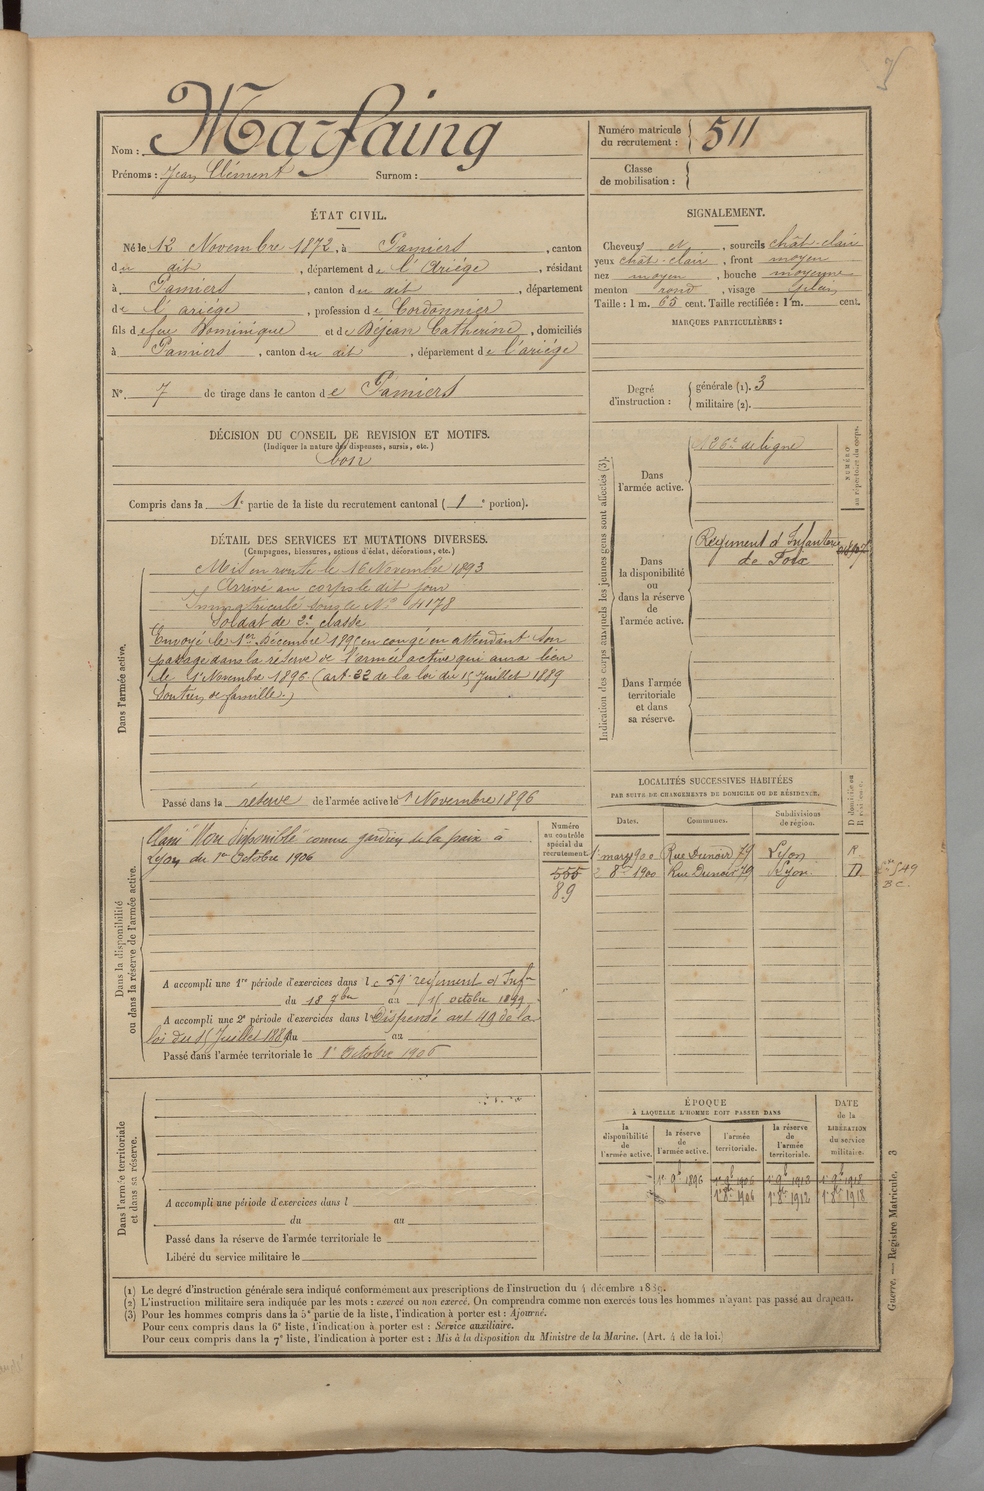 Nom : Marfaing
Prénoms : Jean Clément Surnom :
Numéro matricule du recrutement : 511
Classe de mobilisation :
ÉTAT CIVIL.
Né le 12 Novembre 1872, à Pamiers, canton
du dit, département de l'Ariège, résidant
à Pamiers, canton du dit, département
de l'ariège, profession de Cordonnier
fils de feu Dominique et de Déjean Catherine, domiciliés
à Pamiers, canton du dit, département de l'ariège
N° 7 de tirage dans le canton de Pamiers
SIGNALEMENT.
Cheveux et, sourcils chât-clair
yeux chât-clair, front moyen
nez moyen, bouche moyenne
menton rond, visage plein
Taille : 1 m. 65 cent. Taille rectifiée : 1 m. cent.
MARQUES PARTICULIÈRES :
Degré d'instruction : générale (1). 3
militaire (2).
DÉCISION DU CONSEIL DE REVISION ET MOTIFS.
(Indiquer la nature des dispenses, sursis, etc.)
bon
Compris dans la 1e partie de la liste du recrutement cantonal (1e portion).
DÉTAIL DES SERVICES ET MUTATIONS DIVERSES.
(Campagnes, blessures, actions d'éclat, décorations, etc.)
Dans l'armée active.
Mis en route le 16 Novembre 1893
Arrivé au corps le dit jour
Immatriculé sous le N° 4178
Soldat de 2e classe
Envoyé le 1er Décembre 1895 en congé en attendant son
passage dans la réserve de l'armée active qui aura lieu
le 1er Novembre 1896 (art. 22 de la loi du 15 Juillet 1889
Soutien de famille.)
Passé dans la réserve de l'armée active le 1er Novembre 1896
Indication des corps auxquels les jeunes gens sont affectés (3).
NUMÉRO au répertoire du corps.
Dans l'armée active.
126e de ligne
Dans la disponibilité ou dans la réserve de l'armée active.
Régiment d'Infanterie
de Foix
Dans l'armée territoriale et dans sa réserve.
Dans la disponibilité ou dans la réserve de l'armée active.
Classé Non Disponible comme gardien de la paix à
Lyon du 1er Octobre 1906
Numéro au contrôle spécial du recrutement.
555
89
A accompli une 1re période d'exercices dans le 59e régiment d'Infie
du 18 7bre au 15 octobre 1899
A accompli une 2e période d'exercices dans l Dispensé art 49 de la
loi du 15 Juillet 1889 du au
Passé dans l'armée territoriale le 1er Octobre 1906
LOCALITÉS SUCCESSIVES HABITÉES
PAR SUITE DE CHANGEMENTS DE DOMICILE OU DE RÉSIDENCE.
Dates. Communes. Subdivisions de région. D domicile ou R résidence.
1er mars 900 Rue Dunoir 79 Lyon R
2 8bre 1900 Rue Dunoir 79 Lyon D
Dans l'armée territoriale et dans sa réserve.
A accompli une période d'exercices dans l
du au
Passé dans la réserve de l'armée territoriale le
Libéré du service militaire le
ÉPOQUE
À LAQUELLE L'HOMME DOIT PASSER DANS
DATE de la LIBÉRATION du service militaire.
la disponibilité de l'armée active. la réserve de l'armée active. l'armée territoriale. la réserve de l'armée territoriale.
1er 9b 1896 1er 9b 1906 1er 9b 1912 1er 9b 1918
1er 8bre 1906 1er 8bre 1912 1er 8bre 1918
Guerre. — Registre Matricule. 3
(1) Le degré d'instruction générale sera indiqué conformément aux prescriptions de l'instruction du 4 décembre 1889.
(2) L'instruction militaire sera indiquée par les mots : exercé ou non exercé. On comprendra comme non exercés tous les hommes n'ayant pas passé au drapeau.
(3) Pour les hommes compris dans la 5e partie de la liste, l'indication à porter est : Ajourné.
Pour ceux compris dans la 6e liste, l'indication à porter est : Service auxiliaire.
Pour ceux compris dans la 7e liste, l'indication à porter est : Mis à la disposition du Ministre de la Marine. (Art. 4 de la loi.)